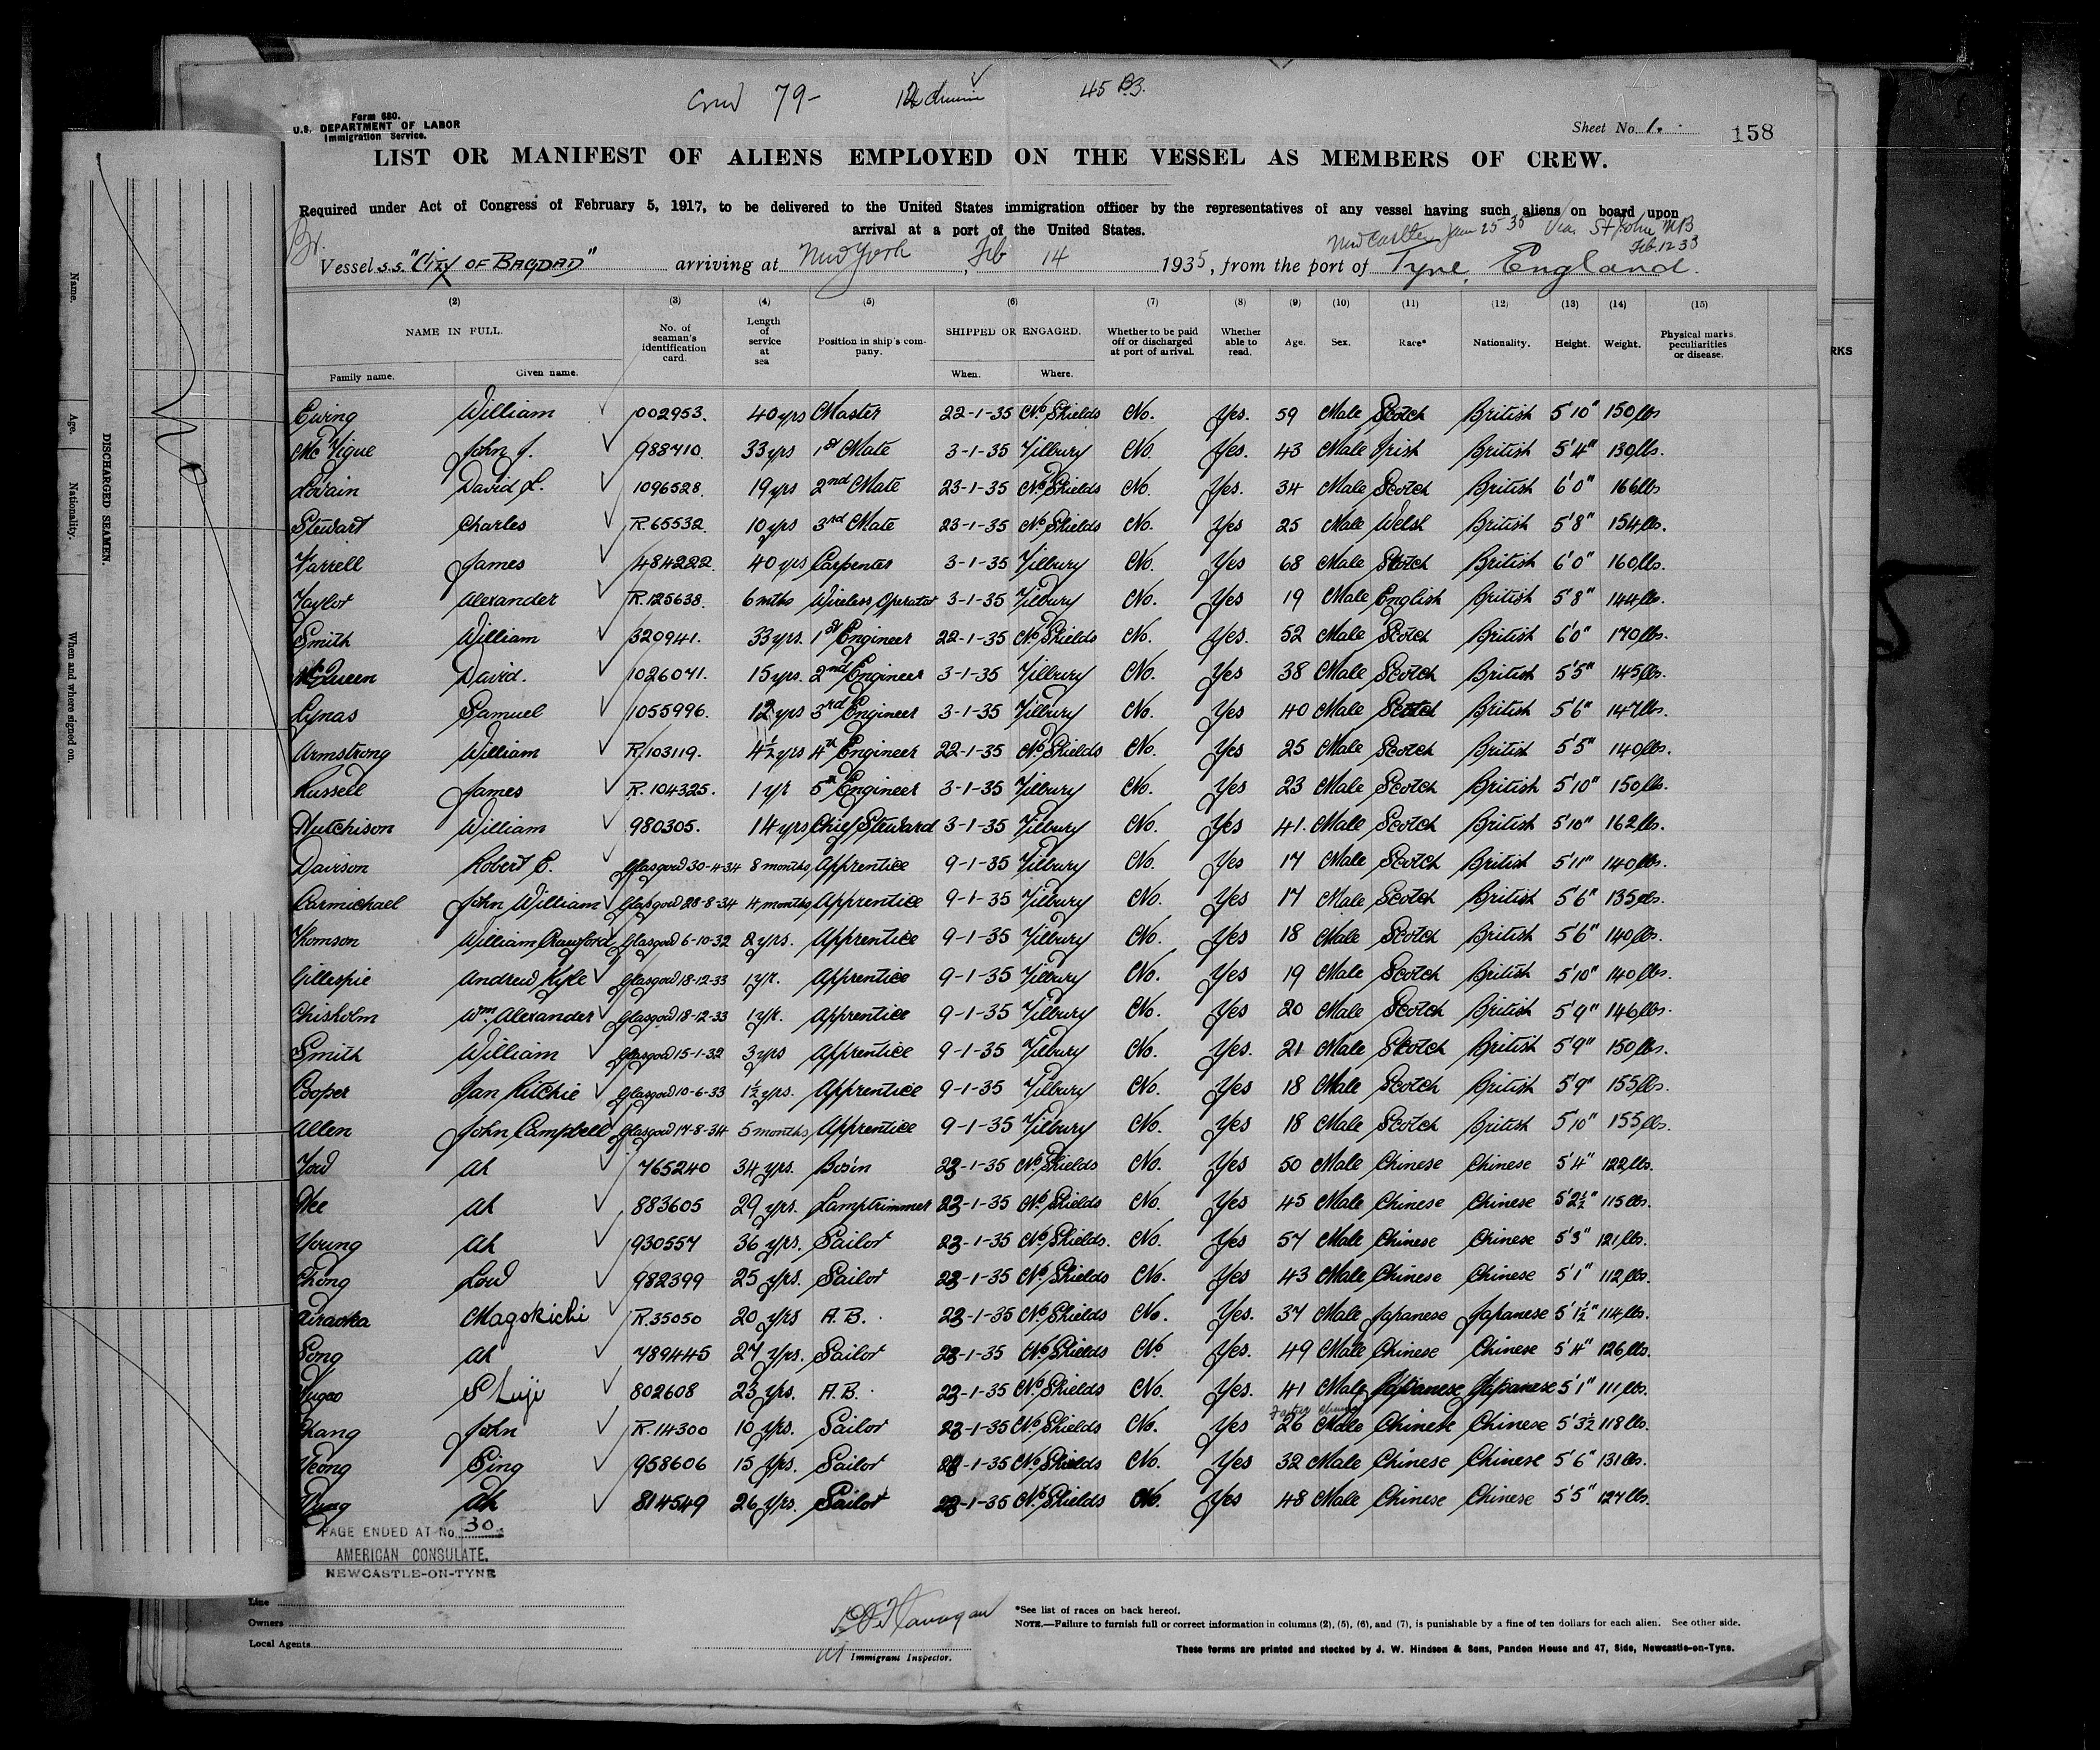 Crew 79-
45 B3.
Form 680.
U.S. DEPARTMENT OF LABOR
Immigration Service.
Sheet No. 1.
158
LIST OR MANIFEST OF ALIENS EMPLOYED ON THE VESSEL AS MEMBERS OF CREW.
Required under Act of Congress of February 5, 1917, to be delivered to the United States immigration officer by the representatives of any vessel having such aliens on board upon
arrival at a port of the United States.
Newcastle Jan 25 35 Via St John NB
Feb 12 33
Br.
Vessel S.S. "City OF BAGDAD" arriving at New York, Feb 14 1935, from the port of Tyne, England.
(2) (3) (4) (5) (6) (7) (8) (9) (10) (11) (12) (13) (14) (15)
NAME IN FULL. No. of seaman's identification card. Length of service at sea Position in ship's company. SHIPPED OR ENGAGED. Whether to be paid off or discharged at port of arrival. Whether able to read. Age. Sex. Race* Nationality. Height. Weight. Physical marks, peculiarities or disease.
Family name. Given name. When. Where.
Ewing William 002953. 40 yrs Master 22-1-35 No. Shields No. Yes. 59 Male Scotch British 5'10" 150 lbs
McVigue John J. 988710. 33 yrs 1st Mate 3-1-35 Tilbury No. Yes. 43 Male Irish British 5'4" 130 lbs.
David L. 1096528. 19 yrs 2nd Mate 23-1-35 No. Shields No. Yes. 34 Male Scotch British 6'0" 166 lbs
Stewart Charles R.65532. 10 yrs 3rd Mate 23-1-35 No. Shields No. Yes 25 Male Welsh British 5'8" 154 lbs.
Farrell James 484222. 40 yrs Carpenter 3-1-35 Tilbury No. Yes 68 Male Scotch British 6'0" 160 lbs.
Taylor Alexander R.125638. 6 mths Wireless Operator 3-1-35 Tilbury No. Yes 19 Male English British 5'8" 144 lbs.
Smith William 320941. 33 yrs. 1st Engineer 22-1-35 No. Shields No. Yes. 52 Male Scotch British 6'0" 170 lbs.
McQueen David. 1026071. 15 yrs. 2nd Engineer 3-1-35 Tilbury No. Yes 38 Male Scotch British 5'5" 145 lbs.
Lynas Samuel 1055996. 12 yrs 3rd Engineer 3-1-35 Tilbury No. Yes 40 Male Scotch British 5'6" 147 lbs.
Armstrong William R.103119. 4½ yrs 4th Engineer 22-1-35 No. Shields No. Yes 25 Male Scotch British 5'5" 140 lbs.
Russell James R.104325. 1 yr 5th Engineer 3-1-35 Tilbury No. Yes 23 Male Scotch British 5'10" 150 lbs.
Hutchison William 980305. 14 yrs Chief Steward 3-1-35 Tilbury No. Yes 41. Male Scotch British 5'10" 162 lbs.
Davison Robert C. Glasgow 30-4-34 8 months Apprentice 9-1-35 Tilbury No. Yes 17 Male Scotch British 5'11" 140 lbs.
Carmichael John William Glasgow 28-8-34 4 months Apprentice 9-1-35 Tilbury No. Yes 17 Male Scotch British 5'6" 135 lbs.
Thomson William Crawford Glasgow 6-10-32 2 yrs. Apprentice 9-1-35 Tilbury No. Yes 18 Male Scotch British 5'6" 140 lbs.
Gillespie Andrew Kyle Glasgow 18-12-33 1 yr. Apprentice 9-1-35 Tilbury No. Yes 19 Male Scotch British 5'10" 140 lbs.
Chisholm Wm. Alexander Glasgow 18-12-33 1 yr. Apprentice 9-1-35 Tilbury No. Yes 20 Male Scotch British 5'9" 146 lbs.
Smith William Glasgow 15-1-32 3 yrs Apprentice 9-1-35 Tilbury No. Yes. 21 Male Scotch British 5'9" 150 lbs.
Cooper Ian Ritchie Glasgow 10-6-33 1½ yrs. Apprentice 9-1-35 Tilbury No. Yes 18 Male Scotch British 5'9" 155 lbs.
Allen John Campbell Glasgow 17-8-34 5 months Apprentice 9-1-35 Tilbury No. Yes 18 Male Scotch British 5'10" 155 lbs.
Ah 765240 34 yrs. Bos'n 23-1-35 No. Shields No. Yes 50 Male Chinese Chinese 5'4" 122 lbs.
Ah 883605 29 yrs. Lamptrimmer 23-1-35 No. Shields No. Yes 45 Male Chinese Chinese 5'2½" 115 lbs.
Young Ah 930557 36 yrs. Sailor 23-1-35 No. Shields. No. Yes 57 Male Chinese Chinese 5'3" 121 lbs.
Chong Low 982399 25 yrs. Sailor 23-1-35 No. Shields No. Yes 43 Male Chinese Chinese 5'1" 112 lbs.
Magokichi R.35050 20 yrs A.B. 23-1-35 No. Shields No. Yes. 37 Male Japanese Japanese 5'1½" 114 lbs.
Song Ah 789445 27 yrs. Sailor 23-1-35 No. Shields No Yes. 49 Male Chinese Chinese 5'4" 126 lbs.
802608 23 yrs. A.B. 23-1-35 No. Shields No. Yes. 41 Male Japanese Japanese 5'1" 111 lbs.
Chang John R.14300 10 yrs. Sailor 23-1-35 No. Shields No. Yes 26 Male Chinese Chinese 5'3½ 118 lbs.
Yeong Ping 958606 15 yrs. Sailor 23-1-35 No. Shields No. Yes 32 Male Chinese Chinese 5'6" 131 lbs.
Ah 814549 26 yrs. Sailor 23-1-35 No. Shields No. Yes 48 Male Chinese Chinese 5'5" 127 lbs.
PAGE ENDED AT No. 30
AMERICAN CONSULATE.
NEWCASTLE-ON-TYNE
Line
Owners
Local Agents
Immigrant Inspector.
*See list of races on back hereof.
NOTE.—Failure to furnish full or correct information in columns (2), (5), (6), and (7), is punishable by a fine of ten dollars for each alien. See other side.
These forms are printed and stocked by J. W. Hindson & Sons, Pandon House and 47, Side, Newcastle-on-Tyne.
Name.
Age.
Nationality.
When and where signed on.
DISCHARGED SEAMEN.
RKS